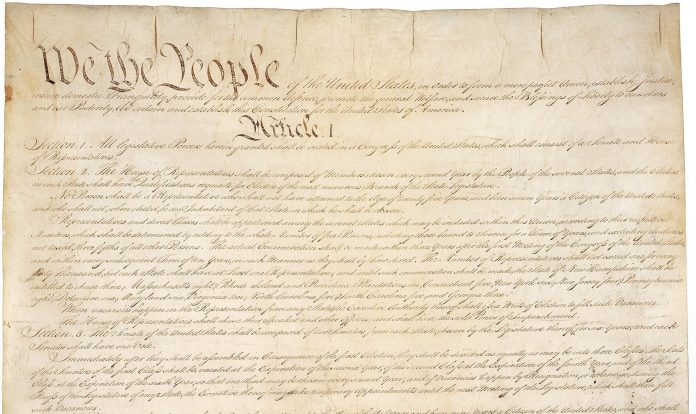 We the People of the United States, in Order to form a more perfect Union, establish Justice,
insure domestic Tranquility, provide for the common defence, promote the general Welfare, and secure the Blessings of Liberty to ourselves
and our Posterity, do ordain and establish this Constitution for the United States of America.
Article. I.
Section. 1. All legislative Powers herein granted shall be vested in a Congress of the United States, which shall consist of a Senate and House
of Representatives.
Section. 2. The House of Representatives shall be composed of Members chosen every second Year by the People of the several States, and the Electors
in each State shall have the Qualifications requisite for Electors of the most numerous Branch of the State Legislature.
No Person shall be a Representative who shall not have attained to the Age of twenty five Years, and been seven Years a Citizen of the United States,
and who shall not, when elected, be an Inhabitant of that State in which he shall be chosen.
Representatives and direct Taxes shall be apportioned among the several States which may be included within this Union, according to their respective
Numbers, which shall be determined by adding to the whole Number of free Persons, including those bound to Service for a Term of Years, and excluding Indians
not taxed, three fifths of all other Persons. The actual Enumeration shall be made within three Years after the first Meeting of the Congress of the United States,
and within every subsequent Term of ten Years, in such Manner as they shall by Law direct. The Number of Representatives shall not exceed one for every
thirty Thousand, but each State shall have at Least one Representative; and until such enumeration shall be made, the State of New Hampshire shall be
entitled to chuse three, Massachusetts eight, Rhode Island and Providence Plantations one, Connecticut five, New York six, New Jersey four, Pennsylvania
eight, Delaware one, Maryland six, Virginia ten, North Carolina five, South Carolina five, and Georgia three.
When vacancies happen in the Representation from any State, the Executive Authority thereof shall issue Writs of Election to fill such Vacancies.
The House of Representatives shall chuse their Speaker and other Officers; and shall have the sole Power of Impeachment.
Section. 3. The Senate of the United States shall be composed of two Senators from each State, chosen by the Legislature thereof, for six Years; and each
Senator shall have one Vote.
Immediately after they shall be assembled in Consequence of the first Election, they shall be divided as equally as may be into three Classes. The Seats
of the Senators of the first Class shall be vacated at the Expiration of the second Year, of the second Class at the Expiration of the fourth Year, and of the third
Class at the Expiration of the sixth Year, so that one third may be chosen every second Year; and if Vacancies happen by Resignation, or otherwise, during the
Recess of the Legislature of any State, the Executive thereof may make temporary Appointments until the next Meeting of the Legislature, which shall then fill
such Vacancies.